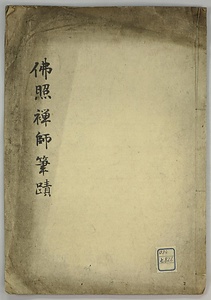 佛照禅師筆蹟